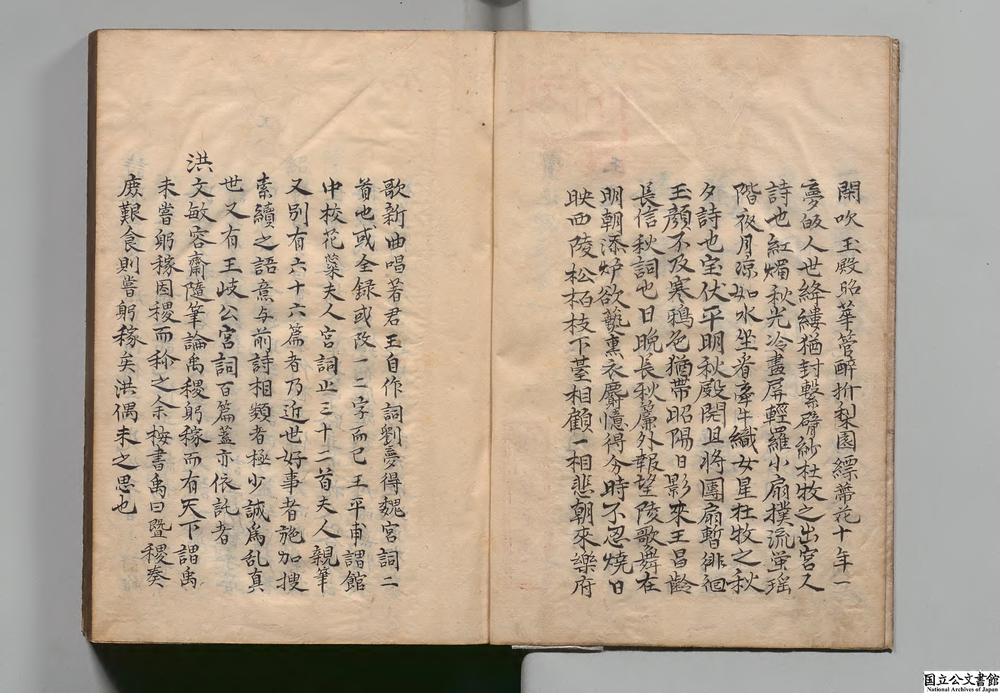 閑吹玉殿昭華管醉折梨園縹蔕花十年一
夢皈人世絳縷猶封繫臂紗杜牧之出宮人
詩也紅燭秋光冷畫屏輕羅小扇撲流蛍瑶
階夜月凉如水坐看牽牛織女星杜牧之秋
夕詩也宝仗平明秋殿開且將團扇暫徘徊
玉顔不及寒鴉色猶帶昭陽日影來王昌齡
長信秋詞也日晩長秋簾外報望陵歌舞在
明朝添炉欲爇熏衣麝憶得分時不忍燒日
映西陵松柏枝下䑓相顧一相悲朝來樂府
歌新曲唱著君王自作詞劉夢得魏宮詞二
首也或全録或改一二字而已王平甫謂館
中校花蘂夫人宮詞止三十二首夫人親筆
又別有六十六篇者乃近世好事者施加搜
索續之語意与前詩相類者極少誠爲乱真
世又有王岐公宮詞百篇蓋亦依託者
洪文敏容齋隨筆論禹稷躬稼而有天下謂禹
未嘗躬稼因稷而称之余按書禹曰曁稷奏
庶艱食則嘗躬稼矣洪偶未之思也
国立公文書館
National Archives of Japan